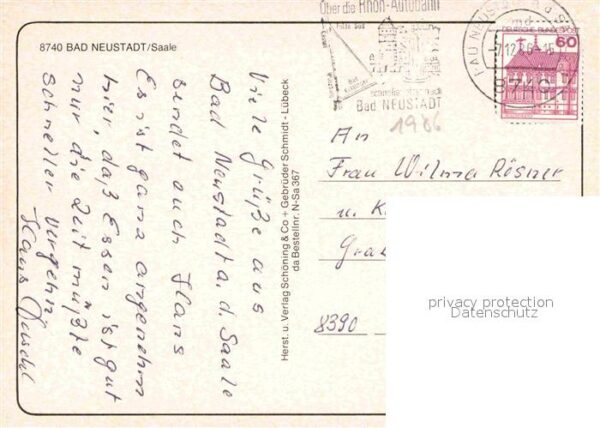 8740 BAD NEUSTADT/Saale
Viele Grüße aus
Bad Neustadt a. d. Saale
sendet euch Hans
Es ist ganz angenehm
hier, daß Essen ist gut
nur die Zeit müßte
schneller vergehn
Hans
Herst. u. Verlag Schöning & Co + Gebrüder Schmidt · Lübeck
da Bestellnr. N-Sa 367
Über die Rhön-Autobahn
Bad NEUSTADT
1986
BAD NEUSTADT
8740
DEUTSCHE BUNDESPOST
60
An
Frau Wilma Rösner
u. K
Gra
8390
privacy protection
Datenschutz